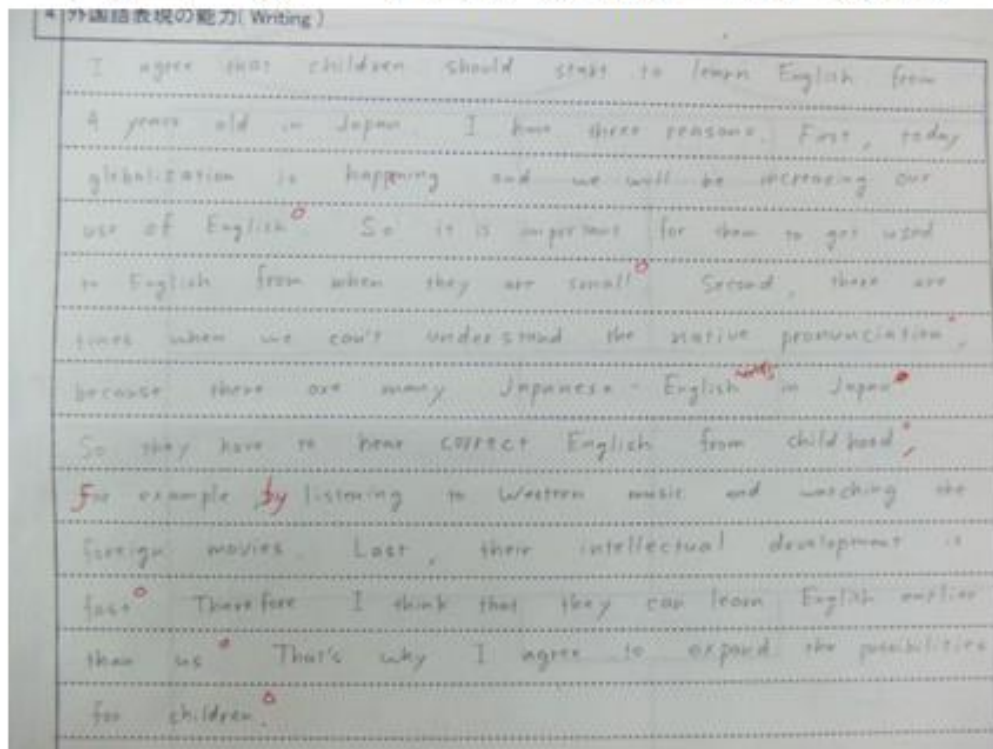 4 外国語表現の能力( Writing )
I agree that children should start to learn English from
4 years old in Japan. I have three reasons. First, today
globalization is happening and we will be increasing our
use of English. So it is important for them to get used
to English from when they are small. Second, there are
times when we can't understand the native pronunciation,
because there are many Japanese-English words in Japan.
So they have to hear correct English from childhood,
For example, by listening to Western music and watching the
foreign movies. Last, their intellectual development is
fast. Therefore I think that they can learn English earlier
than us. That's why I agree to expand the possibilities
for children.